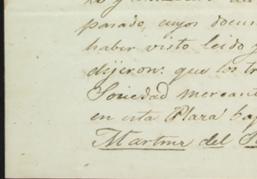 parado, cuyos docum
haber visto leido y
dijeron: que los tr
Sociedad mercant
en esta Plaza baj
Martinez del